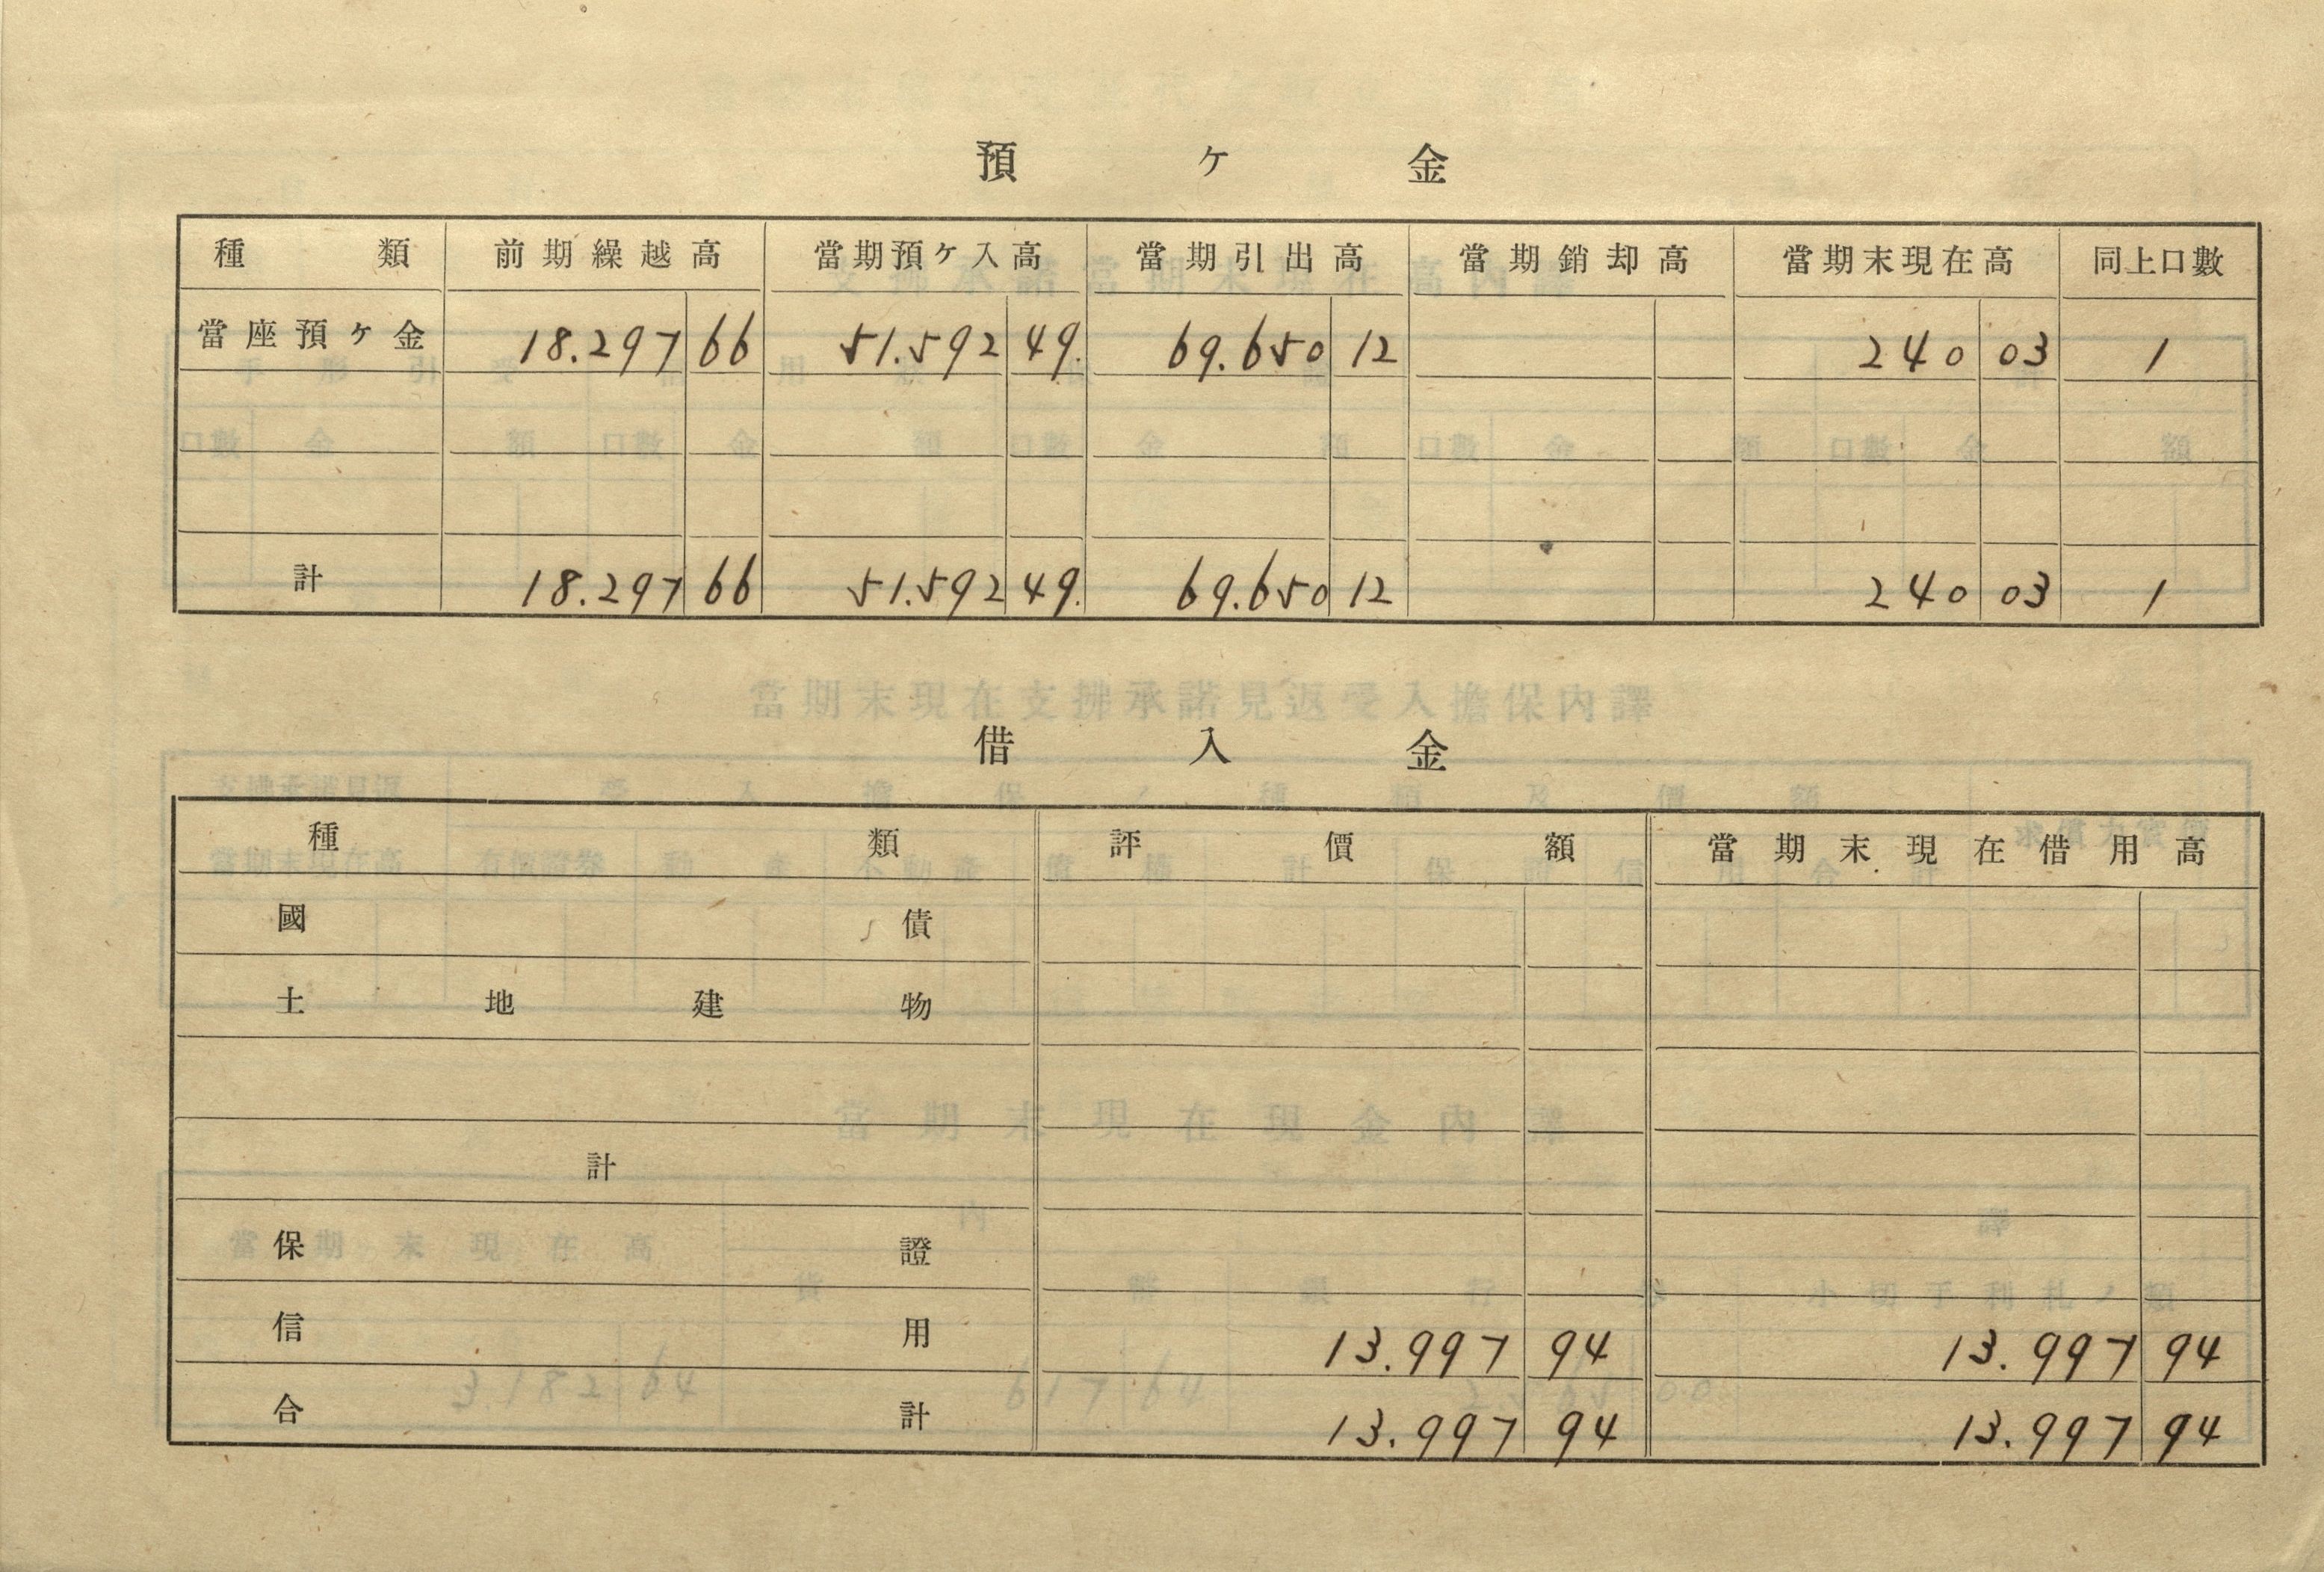 預ケ金
種類 前期繰越高 當期預ケ入高 當期引出高 當期銷却高 當期末現在高 同上口數
當座預ケ金 18.297 66 51.592 49. 69.650 12 240 03 1
計 18.297 66 51.592 49. 69.650 12 240 03 1
借入金
種類 評價額 當期末現在借用高
國債
土地建物
計
保證
信用 13.997 94 13.997 94
合計 13.997 94 13.997 94